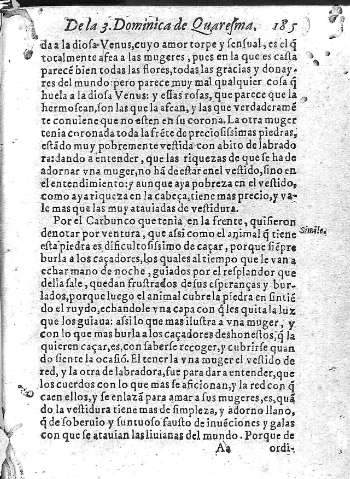 De la 3. Dominica de Quaresma. 185
da a la diosa Venus, cuyo amor torpe y sensual, es el q̃
totalmente afea a las mugeres, pues en la que es casta
parecẽ bien todas las flores, todas las gracias y donay-
res del mundo: pero parece muy mal qualquier cosa q̃
huela a la diosa Venus: y essas rosas, que parece que la
hermosean, son las que la afean, y las que verdaderamẽ
te conuiene que no esten en su corona. La otra muger
tenia coronada toda la frẽte de preciosissimas piedras,
estãdo muy pobremente vestida con abito de labrado
ra: dando a entender, que las riquezas de que se ha de
adornar vna muger, no hã de estar en el vestido, sino en
el entendimiento: y aunque aya pobreza en el vestido,
como aya riqueza en la cabeça, tiene mas precio, y va-
le mas que las muy atauiadas de vestidura.
Por el Carbunco que tenia en la frente, quisieron
denotar por ventura, que assi como el animal q̃ tiene
esta piedra es dificultosissimo de caçar, porque siẽpre
burla a los caçadores, los quales al tiempo que le van a
echar mano de noche, guiados por el resplandor que
della sale, quedan frustrados de sus esperanças y bur-
lados, porque luego el animal cubre la piedra en sintiẽ
do el ruydo, echandole vna capa con q̃ les quita la luz
que los guiaua: assi lo que mas ilustra a vna muger, y
con lo que mas burla a los caçadores deshonestos, q̃ la
quieren caçar, es, con saberse recoger, y cubrirse quan
do siente la ocasiõ. El tener la vna muger el vestido de
red, y la otra de labradora, fue para dar a entender, que
los cuerdos con lo que mas se aficionan, y la red con q̃
caen ellos, y se enlazã para amar a sus mugeres, es, quã
do la vestidura tiene mas de simpleza, y adorno llano,
q̃ de soberuio y suntuoso fausto de inuẽciones y galas
con que se atauian las liuianas del mundo. Porque de
Aa ordi-
Simile.